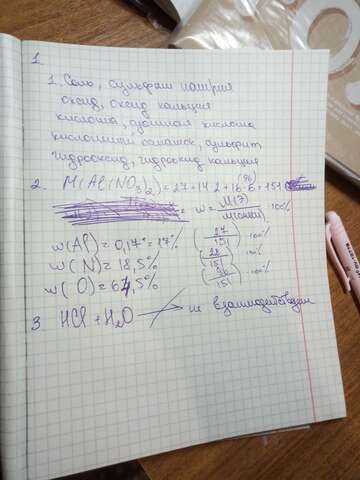 1.
1. Соль, сульфат натрия
оксид, оксид кальция
кислота, азотная кислота
кислотный остаток, сульфит
гидроксид, гидроксид кальция
(96)
2. M(Al(NO3)2) = 27 + 14·2 + 16·6 = 151
= w = M(Э) / M(смеси) · 100%
w(Al) = 0,17 = 17% (27/151) · 100%
w(N) = 18,5% (28/151) · 100%
w(O) = 64,5% (96/151) · 100%
3. HCl + H2O → не взаимодействуют